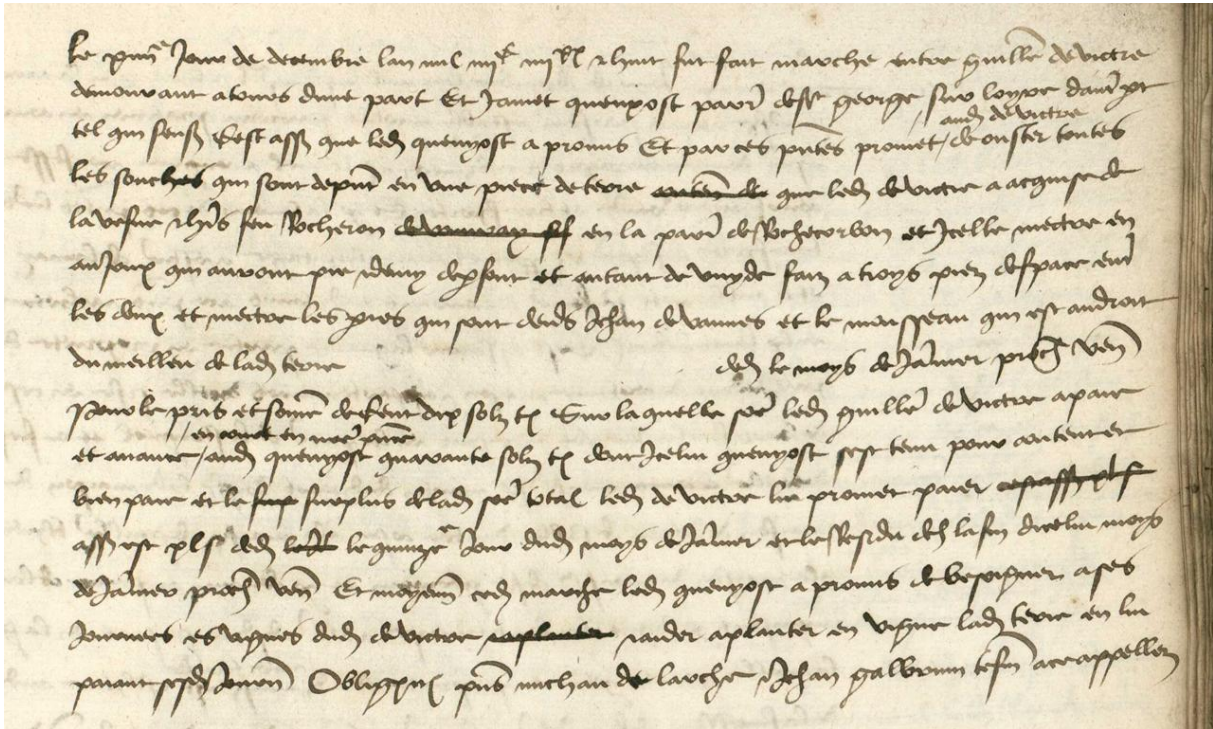 Le premier jour de decembre lan mil iiijc iiijxx & huit fut fait marche entre guille de victre
demourant a tours dune part Et Jamet quenyost parr de st george sur loyre daut pt
tel qui sensuit Cest ass que led quenyost a promis Et par ces pntes promet / aud de victre / de ouster toutes
les souches qui sont de pnt en une piece de terre que led de victre a acquise de
la vefve & hers feu Rocheron en la parr de Rochecorbon et Icelle mectre en
qui auront pie & demy de parfont et autant de vuyde faiz a troys piez despace entre
les deux et mectre les qui sont Jehan de vannes et le mousseau qui est androit
du meilleu de lad terre ded le moys de Janvier proch ven
Pour le pris et some de Cent dix solz tz Sur laquelle soe led guille de victre a paie
et avance / en nre pnce / aud quenyost quarante solz tz dont Icelui quenyost sest tenu pour content et
bien paie et le surplus de lad soe led de victre lui promet paier
ass est ded le quinze jour dud moys de Janvier et le Residu ded la fin dicelui moys
de Janvier proch ven Et moyenn ced marche led quenyost a promis de besoigner a ses
journees es vignes dud de victre & aider a planter en vigne lad terre en lui
paiant sesd journ Oblig pns michau de larche & Jehan galbrun tesm ad ce appellez